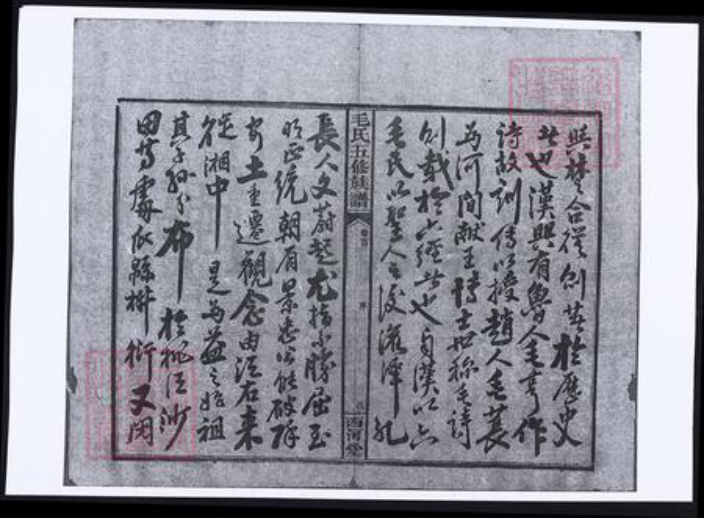 與楚合從剏其於歷史
者也漢興有魯人毛亨作
詩故訓傳以授趙人毛萇
為河間獻王博士世稱毛詩
列載於六經者也自漢以六
毛民以聖人之後滋澤孔
毛氏五修族譜
卷首
序
西河堂
長人文蔚起尤指不勝屈至
明正統朝有景忠公能破除
安土重遷觀念由江右來
從湘中是為益之始祖
其子孫分布於桃江沙
田等處瓜緜椒衍又閱